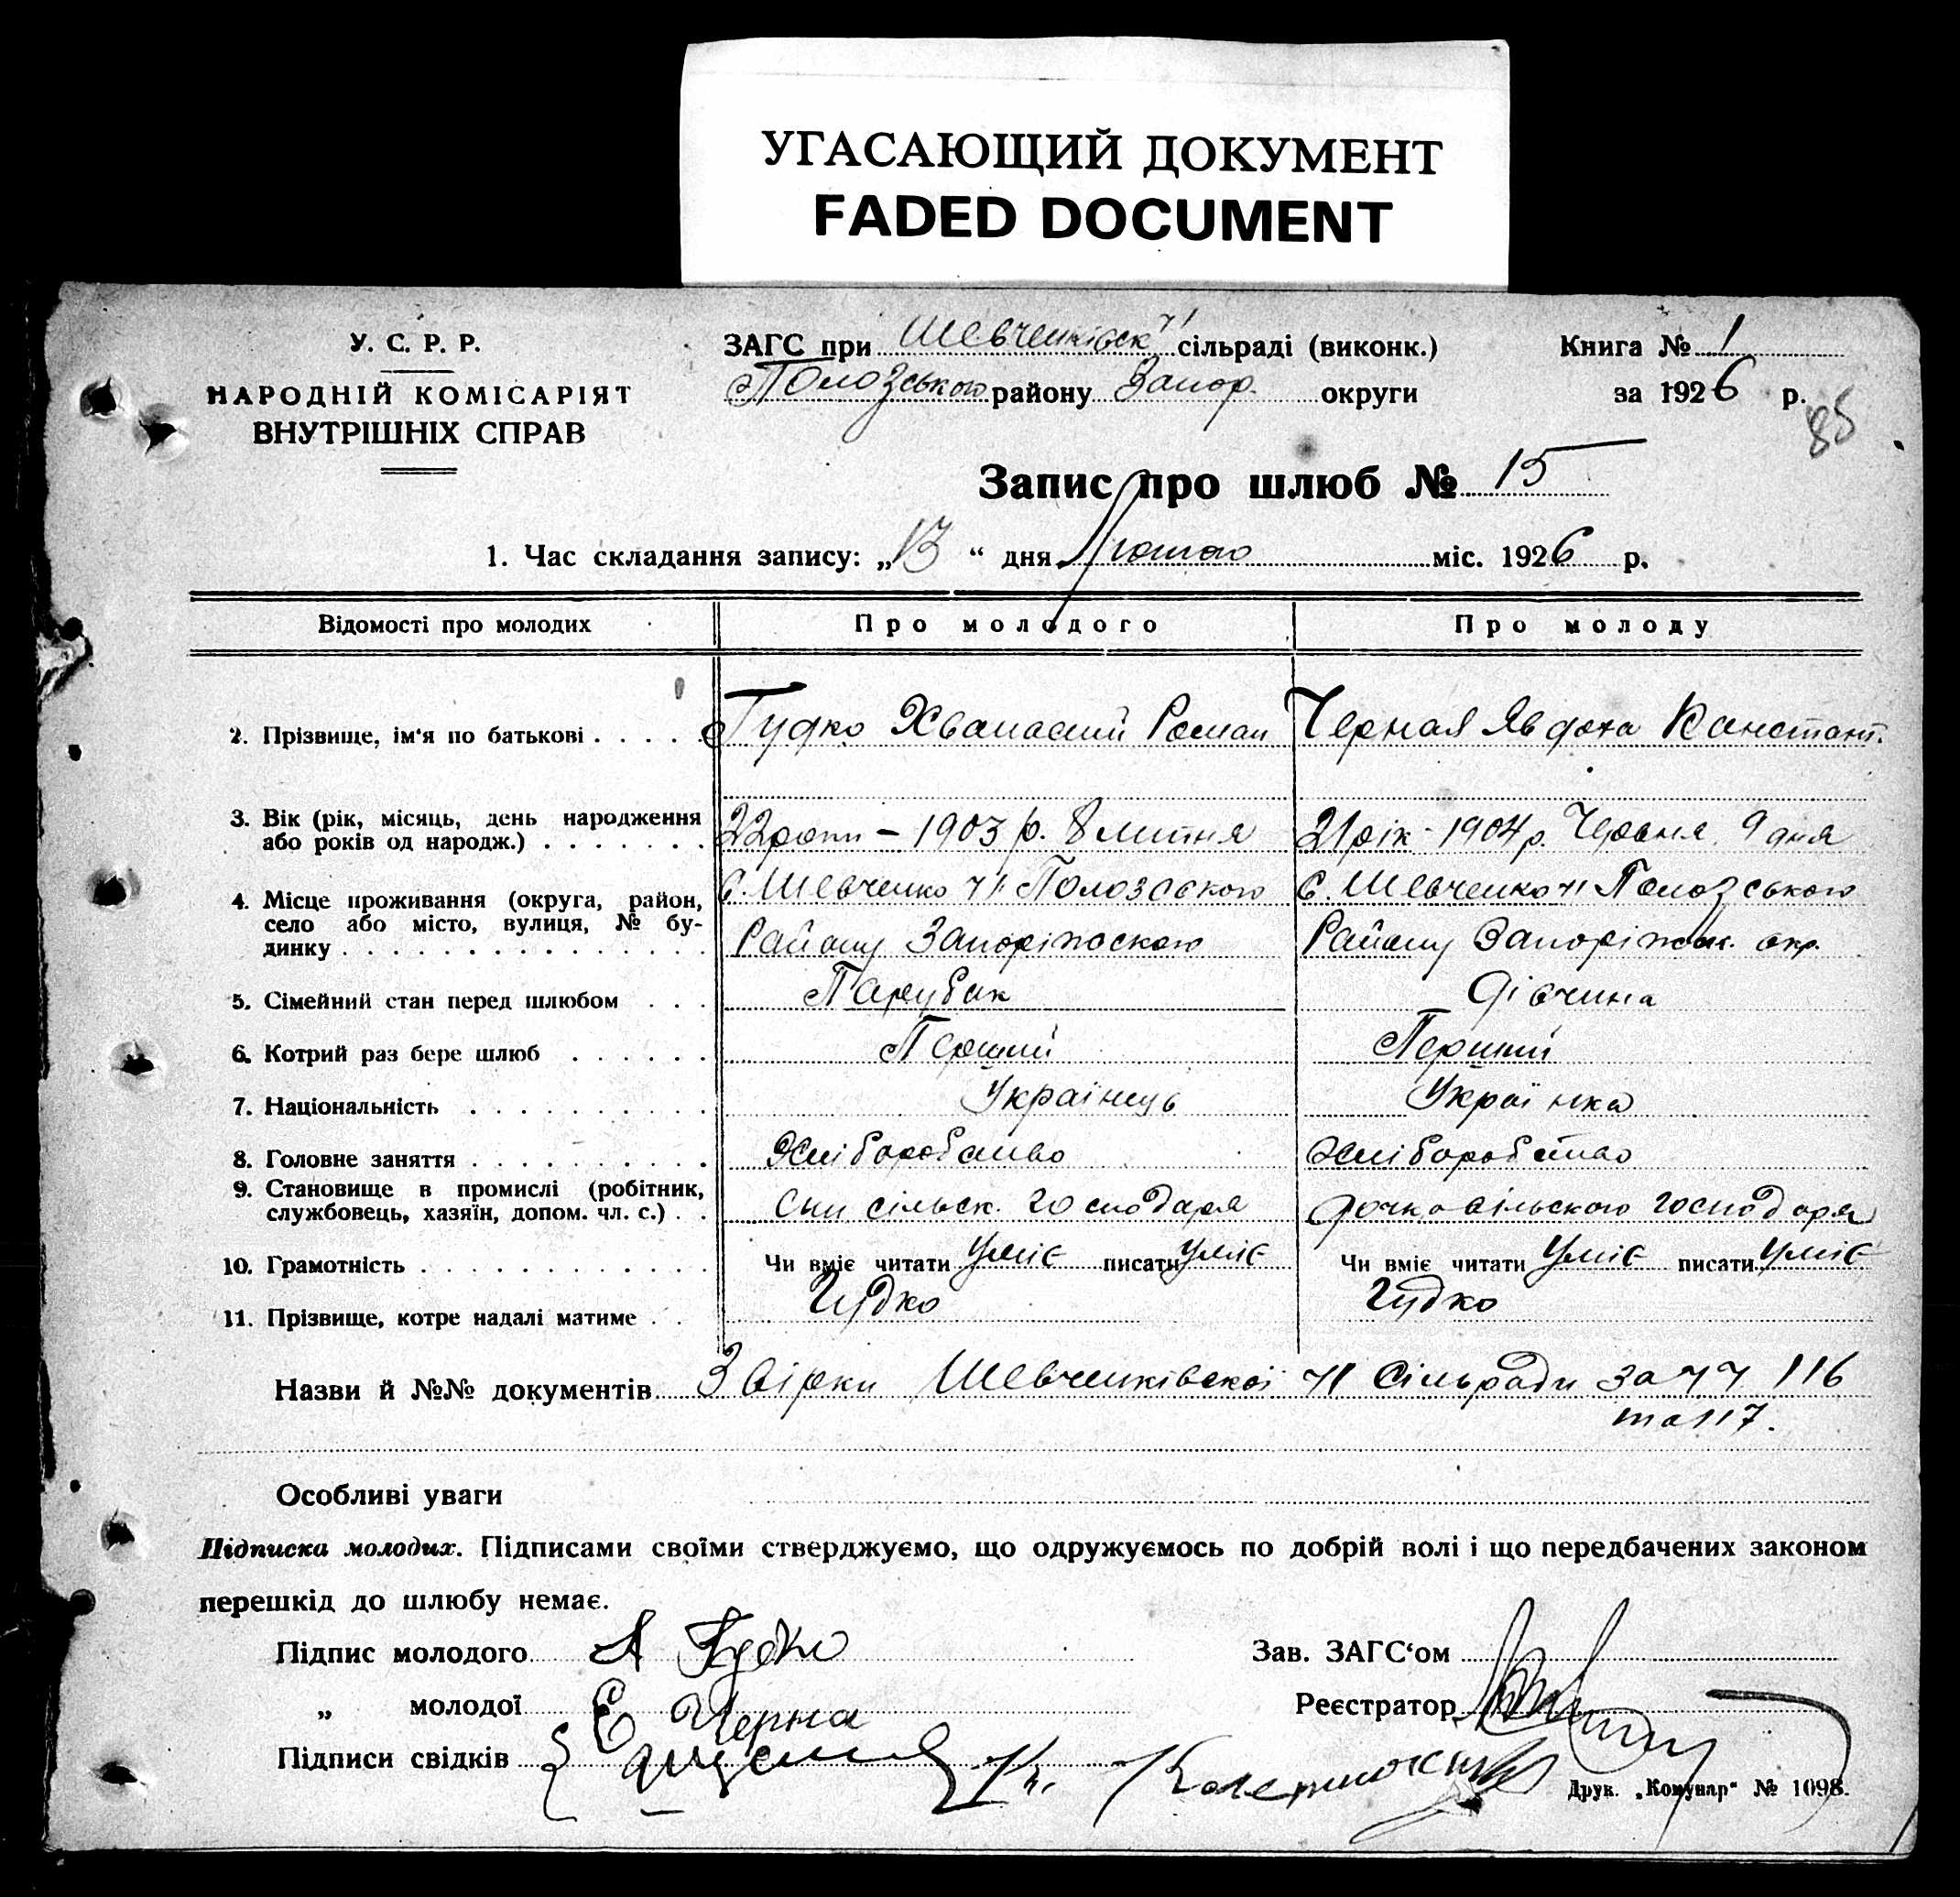 УГАСАЮЩИЙ ДОКУМЕНТ
FADED DOCUMENT
У. С. Р. Р.
НАРОДНІЙ КОМІСАРІЯТ
ВНУТРІШНІХ СПРАВ
ЗАГС при Шевченківск ч1 сільраді (виконк.)
Пологзського району Запор. округи
Книга № 1
за 1926 р.
85
Запис про шлюб № 15
1. Час складання запису: „13“ дня Лютого міс. 1926 р.
Відомості про молодих Про молодого Про молоду
2. Прізвище, ім'я по батькові . . . . . Гудко Хванасий Роман Черная Явдоха Констант.
3. Вік (рік, місяць, день народження
або років од народж.) . . . . . . . 22 роки – 1903 р. 8 липня 21 рік - 1904 р. Червня 9 дня
4. Місце проживання (округа, район,
село або місто, вулиця, № бу-
динку . . . . . . . . . . . . . . .
С. Шевченко ч1 Полозського
Району Запоріжского
С. Шевченко ч1 Полозського
Району Запоріжськ. окр.
5. Сімейний стан перед шлюбом . . . Парубак Дівчина
6. Котрий раз бере шлюб . . . . . . Перший Перший
7. Національність . . . . . . . . . . Українець Українка
8. Головне заняття . . . . . . . . . . Хліборобство Хліборобство
9. Становище в промислі (робітник,
службовець, хазяїн, допом. чл. с.) . . Син сільск. господаря дочка сільского господаря
10. Грамотність . . . . . . . . . . . . Чи вміє читати Уміє писати уміє Чи вміє читати Уміє писати Уміє
11. Прізвище, котре надалі матиме . . Гудко Гудко
Назви й №№ документів Звірки Шевченківскоі ч1 Сільради за чч 116
та 117.
Особливі уваги
Підписка молодих. Підписами своїми стверджуємо, що одружуємось по добрій волі і що передбачених законом
перешкід до шлюбу немає.
Підпис молодого А Гудко
„ молодої Е Черна
Підписи свідків
Зав. ЗАГС‘ом
Реєстратор
Друк. „Комунар“ № 1098.